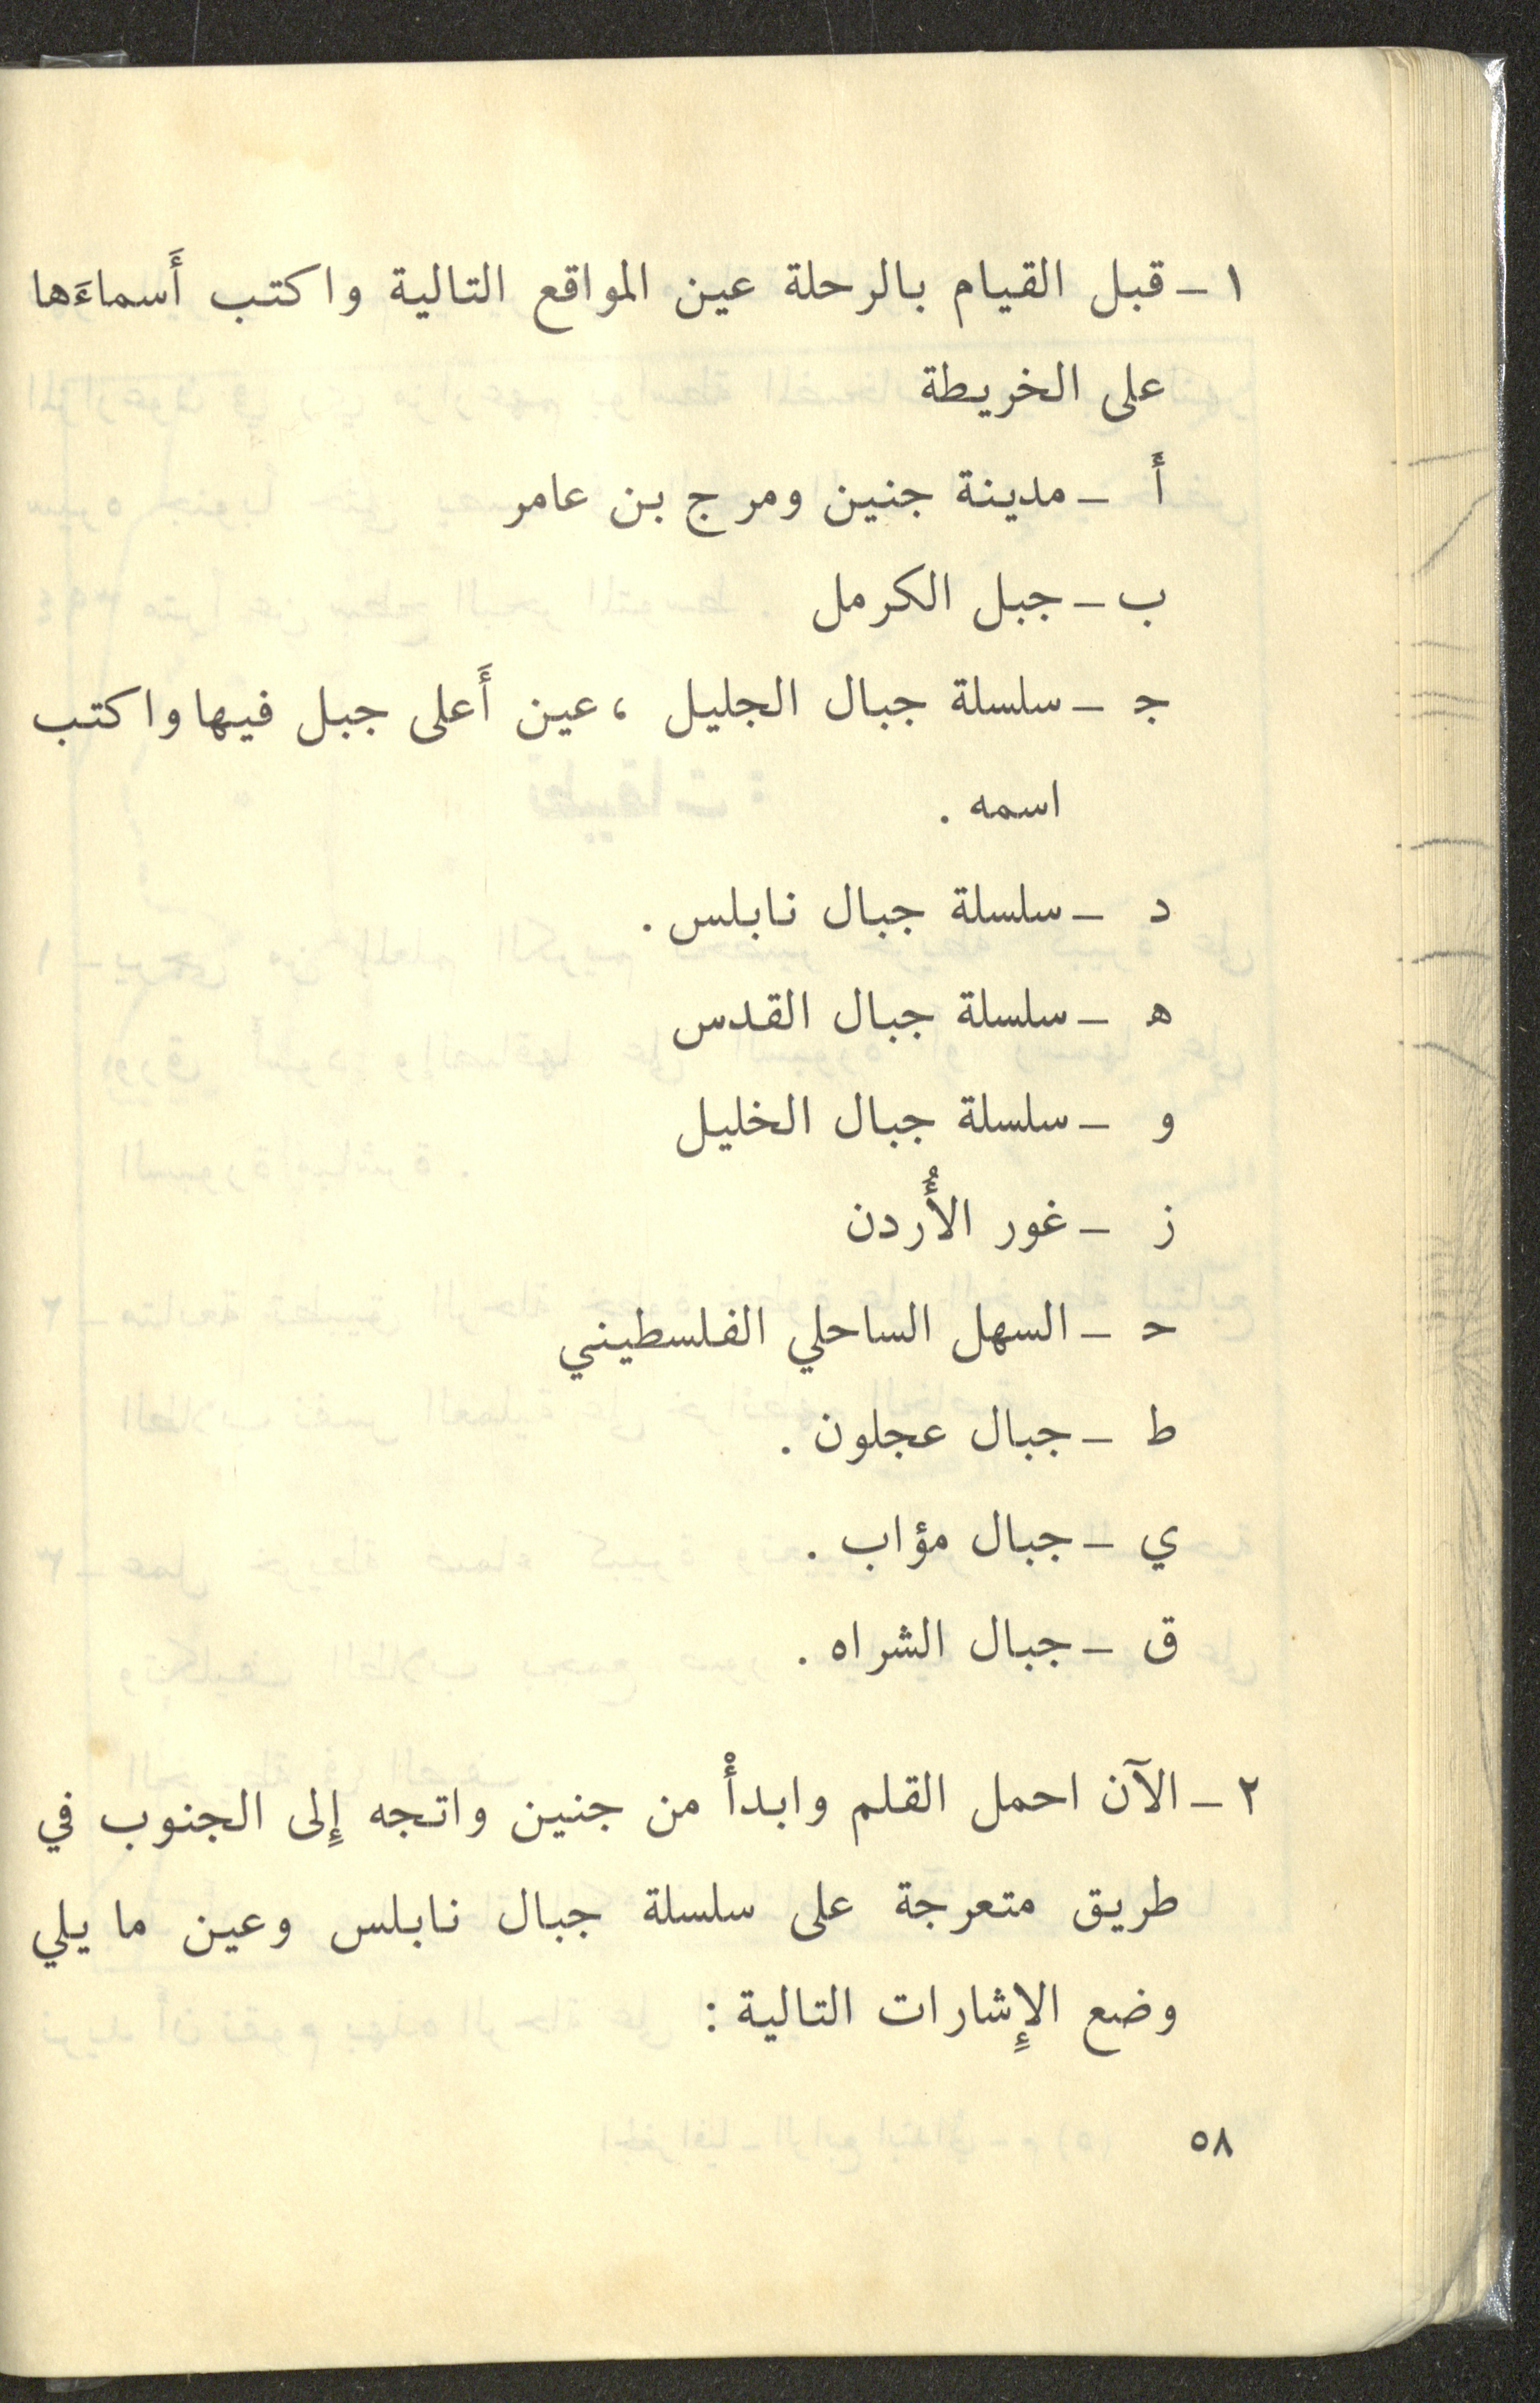 ١ - قبل القيام بالرحلة عين المواقع التالية واكتب أَسماءَها
على الخريطة
أَ - مدينة جنين ومرج بن عامر
ب - جبل الكرمل
جـ - سلسلة جبال الجليل ، عين أَعلى جبل فيها واكتب
اسمه .
د - سلسلة جبال نابلس .
هـ - سلسلة جبال القدس
و - سلسلة جبال الخليل
ز - غور الأُردن
حـ - السهل الساحلي الفلسطيني
ط - جبال عجلون .
ي - جبال مؤاب .
ق - جبال الشراه .
٢ - الآن احمل القلم وابدأْ من جنين واتجه إِلى الجنوب في
طريق متعرجة على سلسلة جبال نابلس وعين ما يلي
وضع الإِشارات التالية :
٥٨